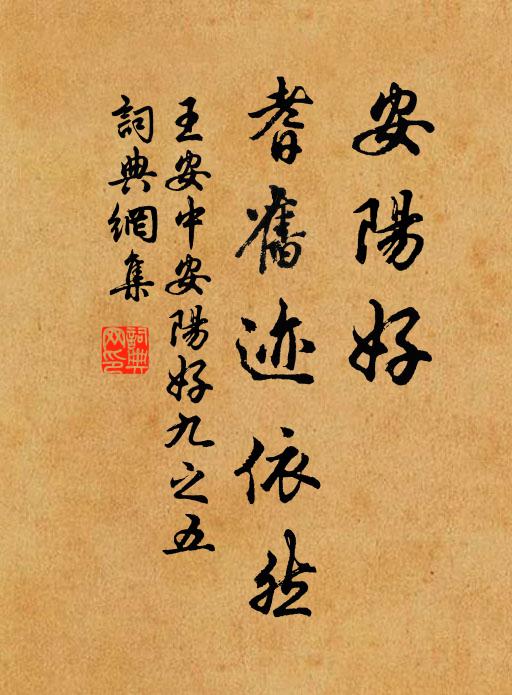 安陽好
耆舊迹依然
王安中安陽好九之五
詞典網集
詞典
网印